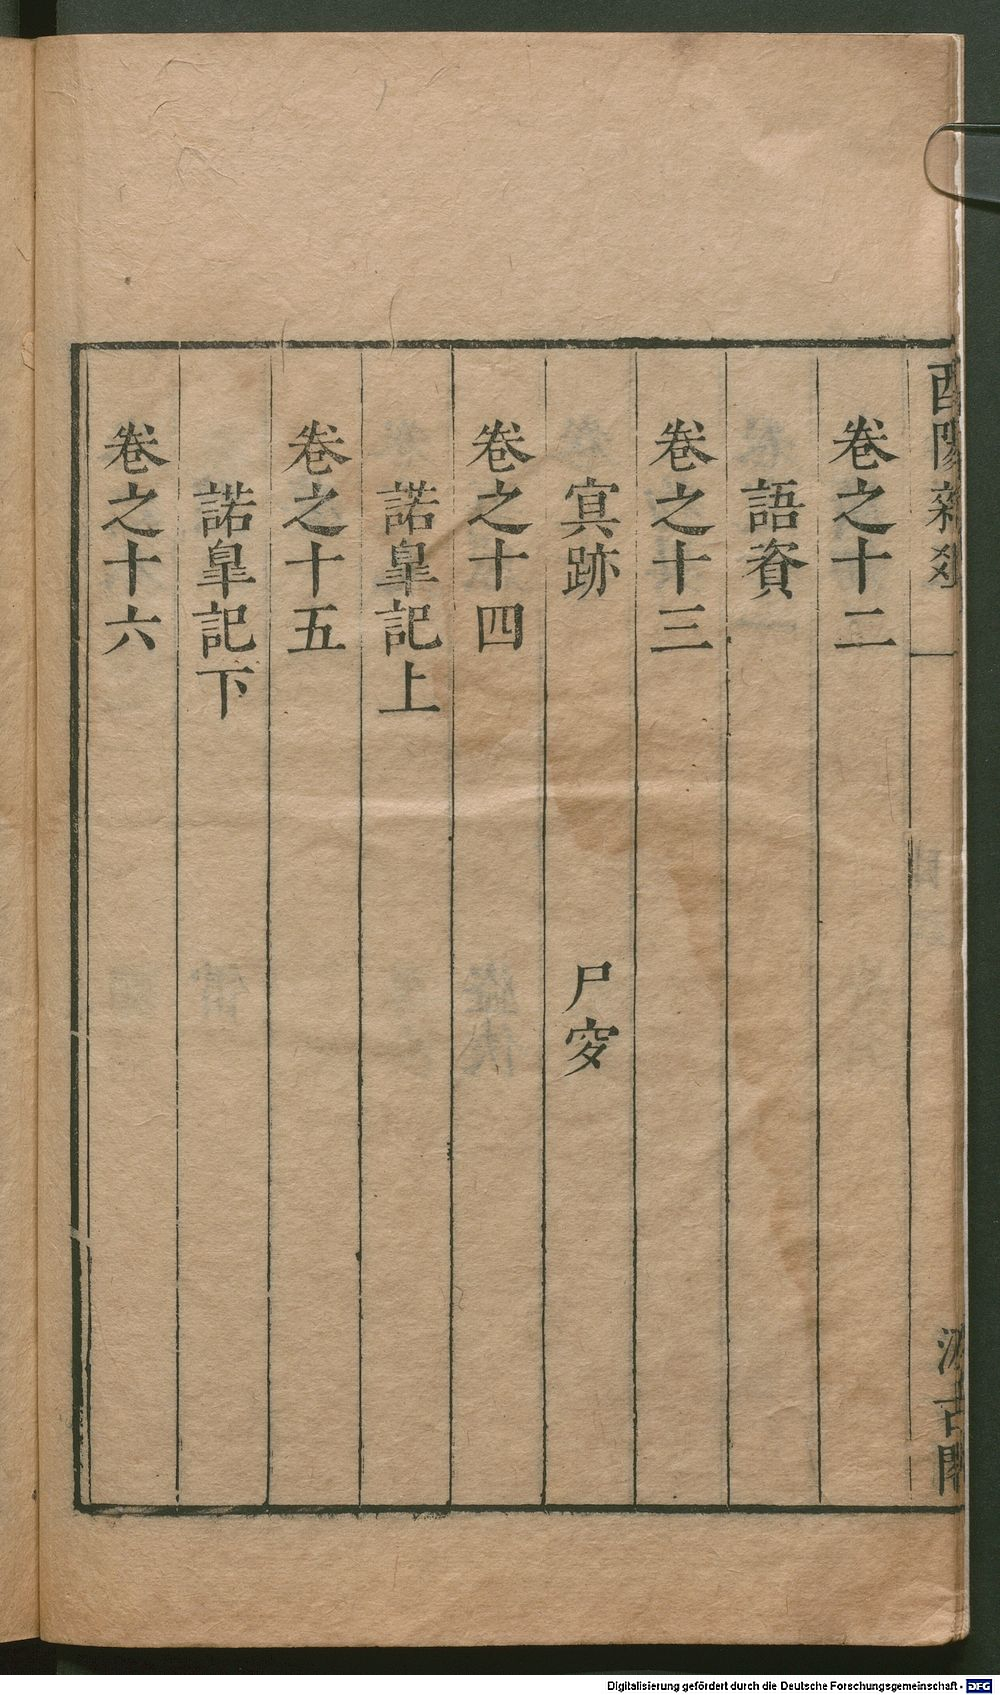 酉陽雜爼
一
汲古閣
卷之十二
語資
卷之十三
寘跡 尸穸
卷之十四
諾臯記上
卷之十五
諾臯記下
卷之十六
Digitalisierung gefördert durch die Deutsche Forschungsgemeinschaft - DFG